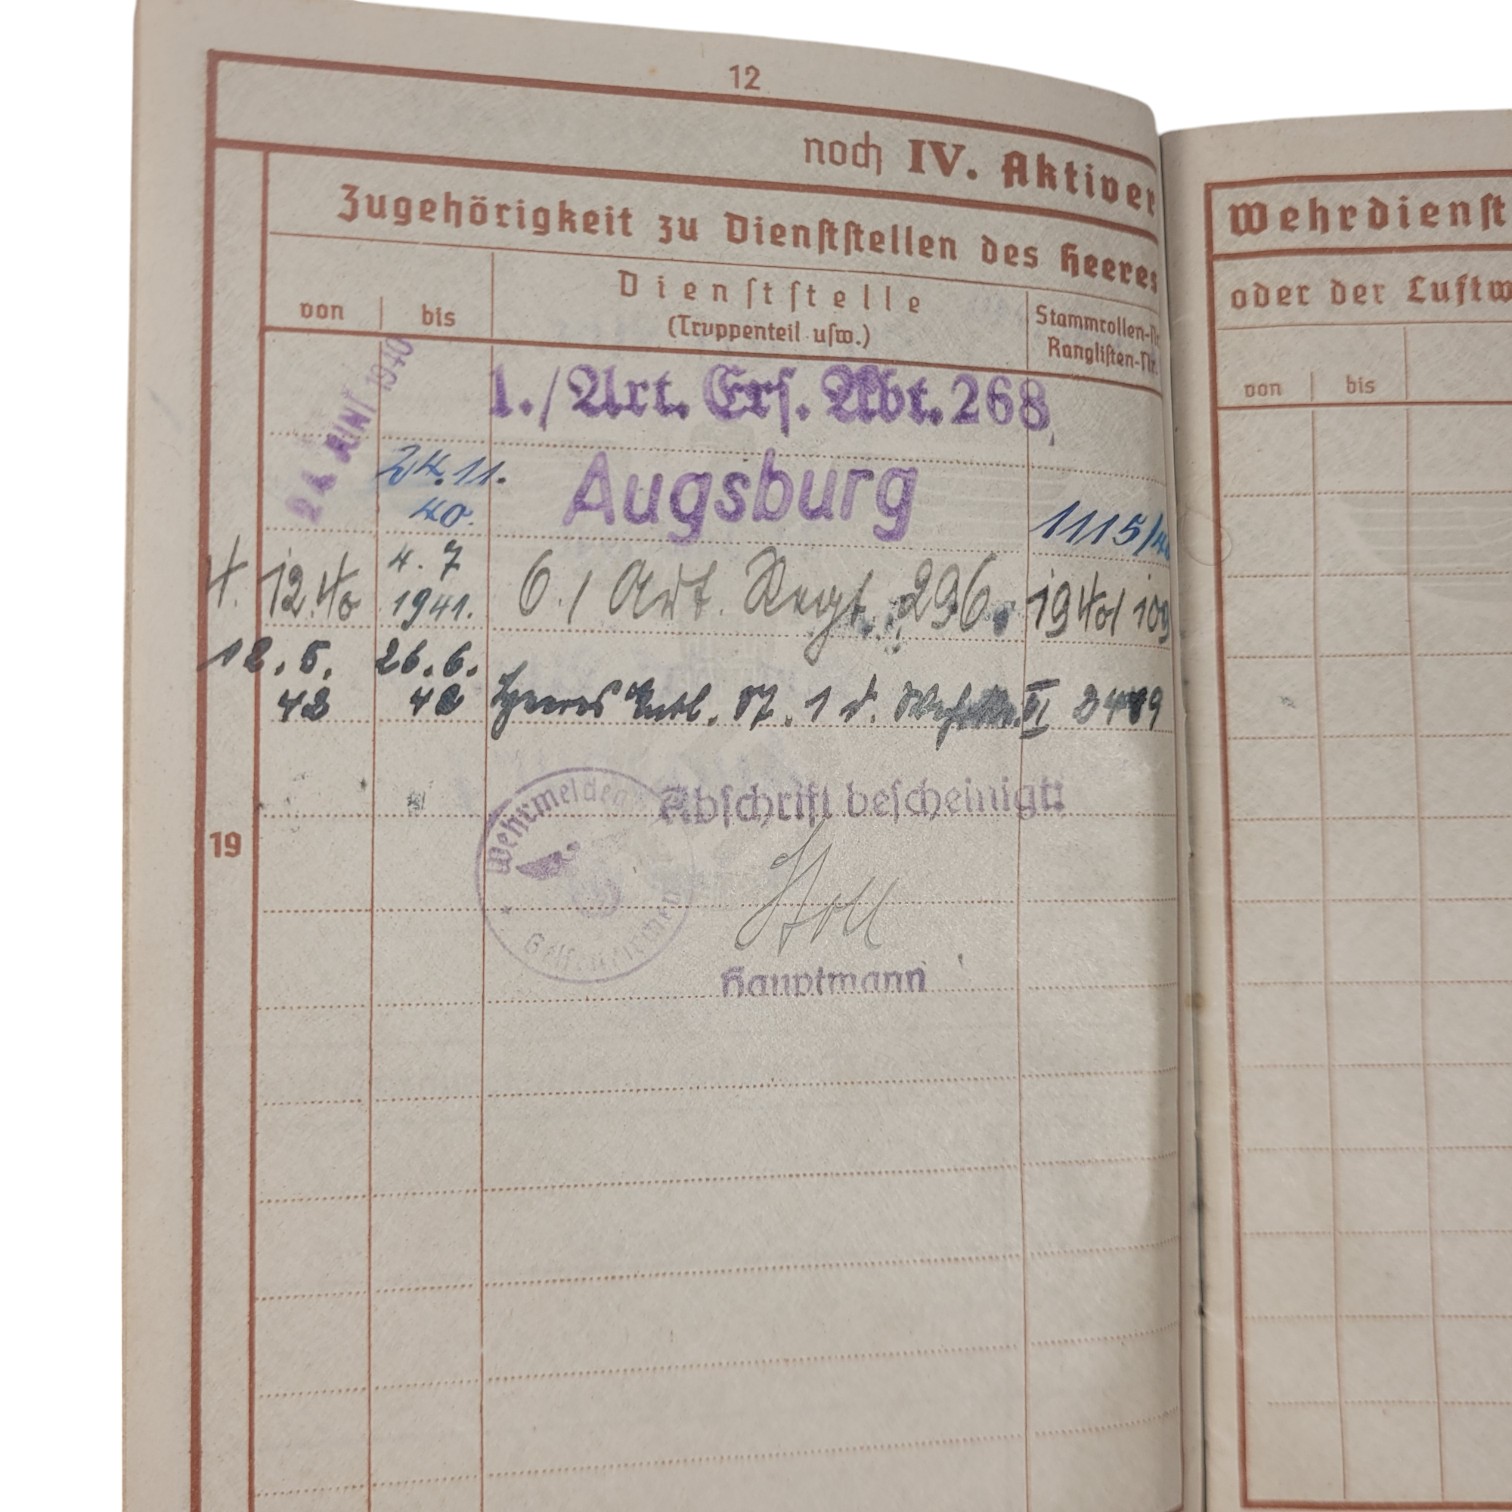 12
noch IV. Aktiver
Zugehörigkeit zu Dienststellen des Heeres
von
bis
Dienststelle
(Truppenteil usw.)
Stammrollen-Nr.
Ranglisten-Nr.
24. JUNI 1940
24.11.
40.
1./Art. Ers. Abt. 268,
Augsburg
1115/40
4. 12. 40
4. 7
1941.
6./ Art. Regt. 296.
1940/ 109
18. 5.
42
26. 6.
42
Heeres Entl. St. 1 d. VI 2419
19
Wehrmeldeamt
Gelsenkirchen
Abschrift bescheinigt:
Stoll
Hauptmann
Wehrdienst
oder der Luftw
von
bis